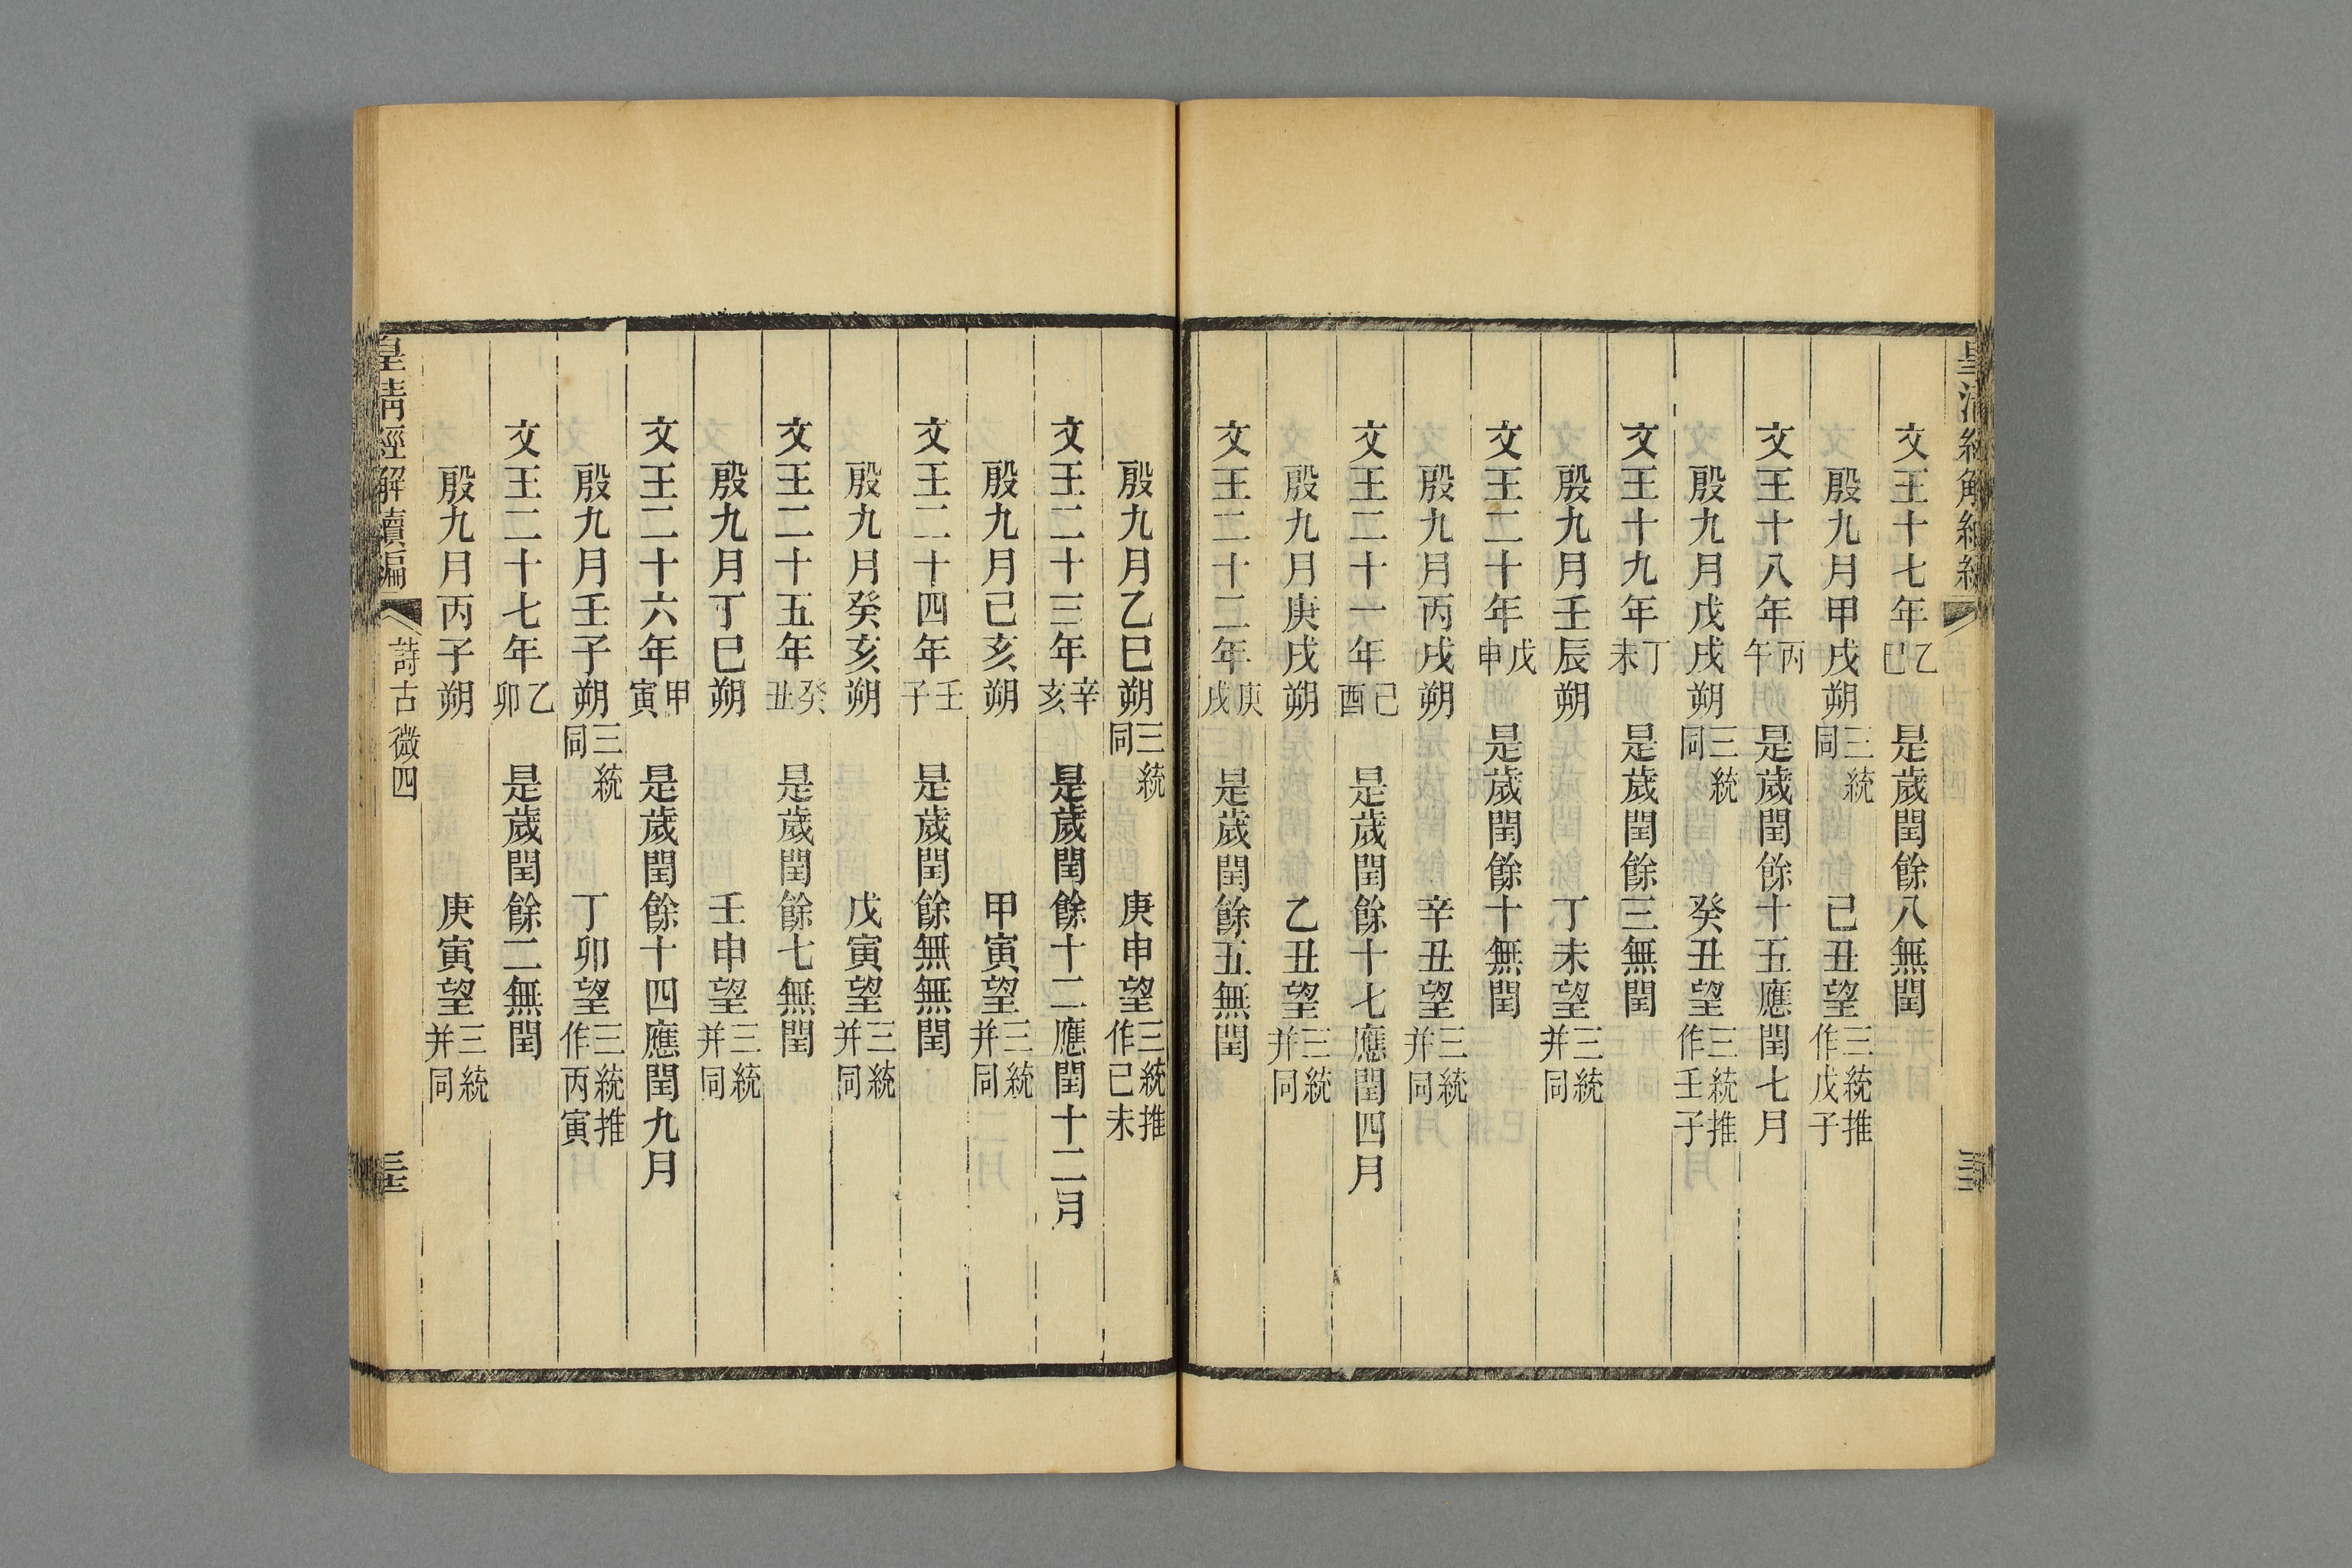 文王十七年乙巳　是歲閏餘八無閏
殷九月甲戌朔三統同　己丑望三統推作戊子
文王十八年丙午　是歲閏餘十五應閏七月
殷九月戊戌朔三統同　癸丑望三統推作壬子
文王十九年丁未　是歲閏餘三無閏
殷九月壬辰朔　丁未望三統并同
文王二十年戊申　是歲閏餘十無閏
殷九月丙戌朔　辛丑望三統并同
文王二十一年己酉　是歲閏餘十七應閏四月
殷九月庚戌朔　乙丑望三統并同
文王二十二年庚戌　是歲閏餘五無閏
殷九月乙巳朔三統同　庚申望三統推作己未
文王二十三年辛亥　是歲閏餘十二應閏十二月
殷九月己亥朔　甲寅望三統并同
文王二十四年壬子　是歲閏餘無無閏
殷九月癸亥朔　戊寅望三統并同
文王二十五年癸丑　是歲閏餘七無閏
殷九月丁巳朔　壬申望三統并同
文王二十六年甲寅　是歲閏餘十四應閏九月
殷九月壬子朔三統同　丁卯望三統推作丙寅
文王二十七年乙卯　是歲閏餘二無閏
殷九月丙子朔　庚寅望三統并同
皇清經解續編　詩古微四